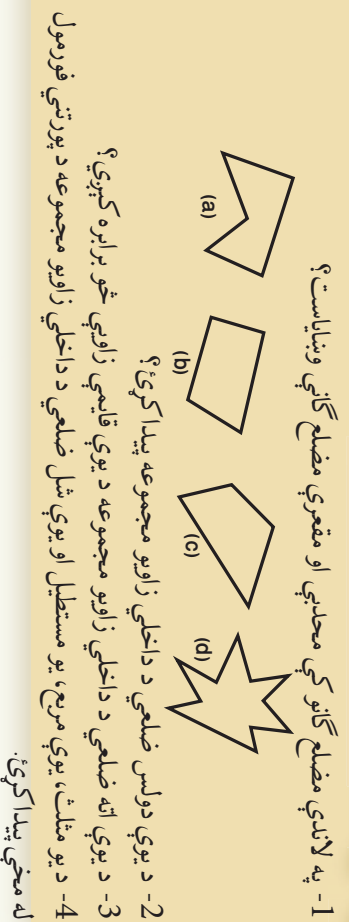 1- په لاندې مضلع گانو کې محدبې او مقعرې مضلع گانې وښاياست؟
(a)
(b)
(c)
(d)
2- د يوې دولس ضلعې د داخلي زاويو مجموعه پيدا کړئ؟
3- د يوې اته ضلعې د داخلي زاويو مجموعه د يوې قايمې زاويې څو برابره کېږي؟
4- د يو مثلث، يوې مربع، يو مستطيل او يوې شل ضلعې د داخلي زاويو مجموعه د پورتني فورمول
له مخې پيدا کړئ.